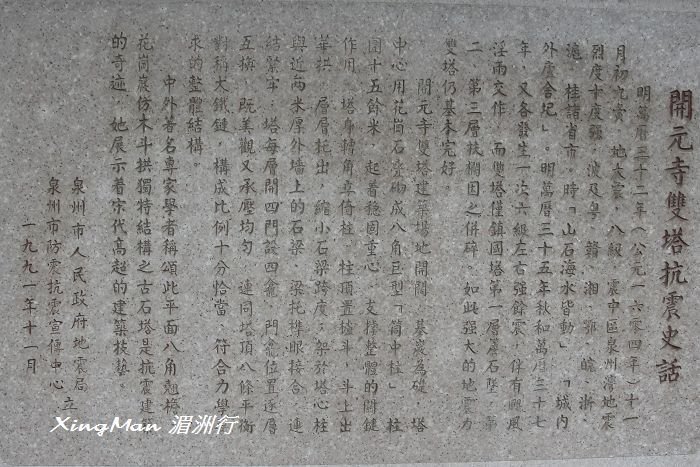 開元寺雙塔抗震史話
明萬曆三十二年（公元一六零四年）十一
月初九夜 地大震 八級 震中區泉州灣地震
烈度十度强，波及粤、贛、湘、鄂、皖、浙、
滬、桂諸省市。時「山石海水皆動」、「城内
外廬舍圮」。明萬曆三十五年秋和萬曆三十七
年 又各發生一次六級左右强餘震，伴有颶風
淫雨交作 而雙塔僅鎮國塔第一層蓋石墜 第
二、第三層扶欄因之併碎。如此强大的地震力
雙塔仍基本完好。
開元寺雙塔建築場地開闊 基巖爲礎 塔
中心用花崗石叠砌成八角巨型「筒中柱」 柱
圍十五餘米，起着穩固重心，支撑整體的關鍵
作用。塔身轉角立倚柱，柱頂置櫨斗，斗上出
華拱，層層托出，縮小石梁跨度；架於塔心柱
與近兩米厚外墙上的石梁 梁托榫眼接合，連
結緊牢；塔每層開四門設四龕，門龕位置逐層
互换，既美觀又承壓均匀。連同塔頂八條平衡
對稱大鐵鏈，構成比例十分恰當、符合力學
求的整體結構。
中外著名專家學者稱頌此平面八角翹檐
花崗巖仿木斗拱獨特結構之古石塔是抗震建築
的奇迹，她展示着宋代高超的建築技藝。
泉州市人民政府地震局
泉州市防震抗震宣傳中心 立
一九九一年十一月
XingMan 湄洲行